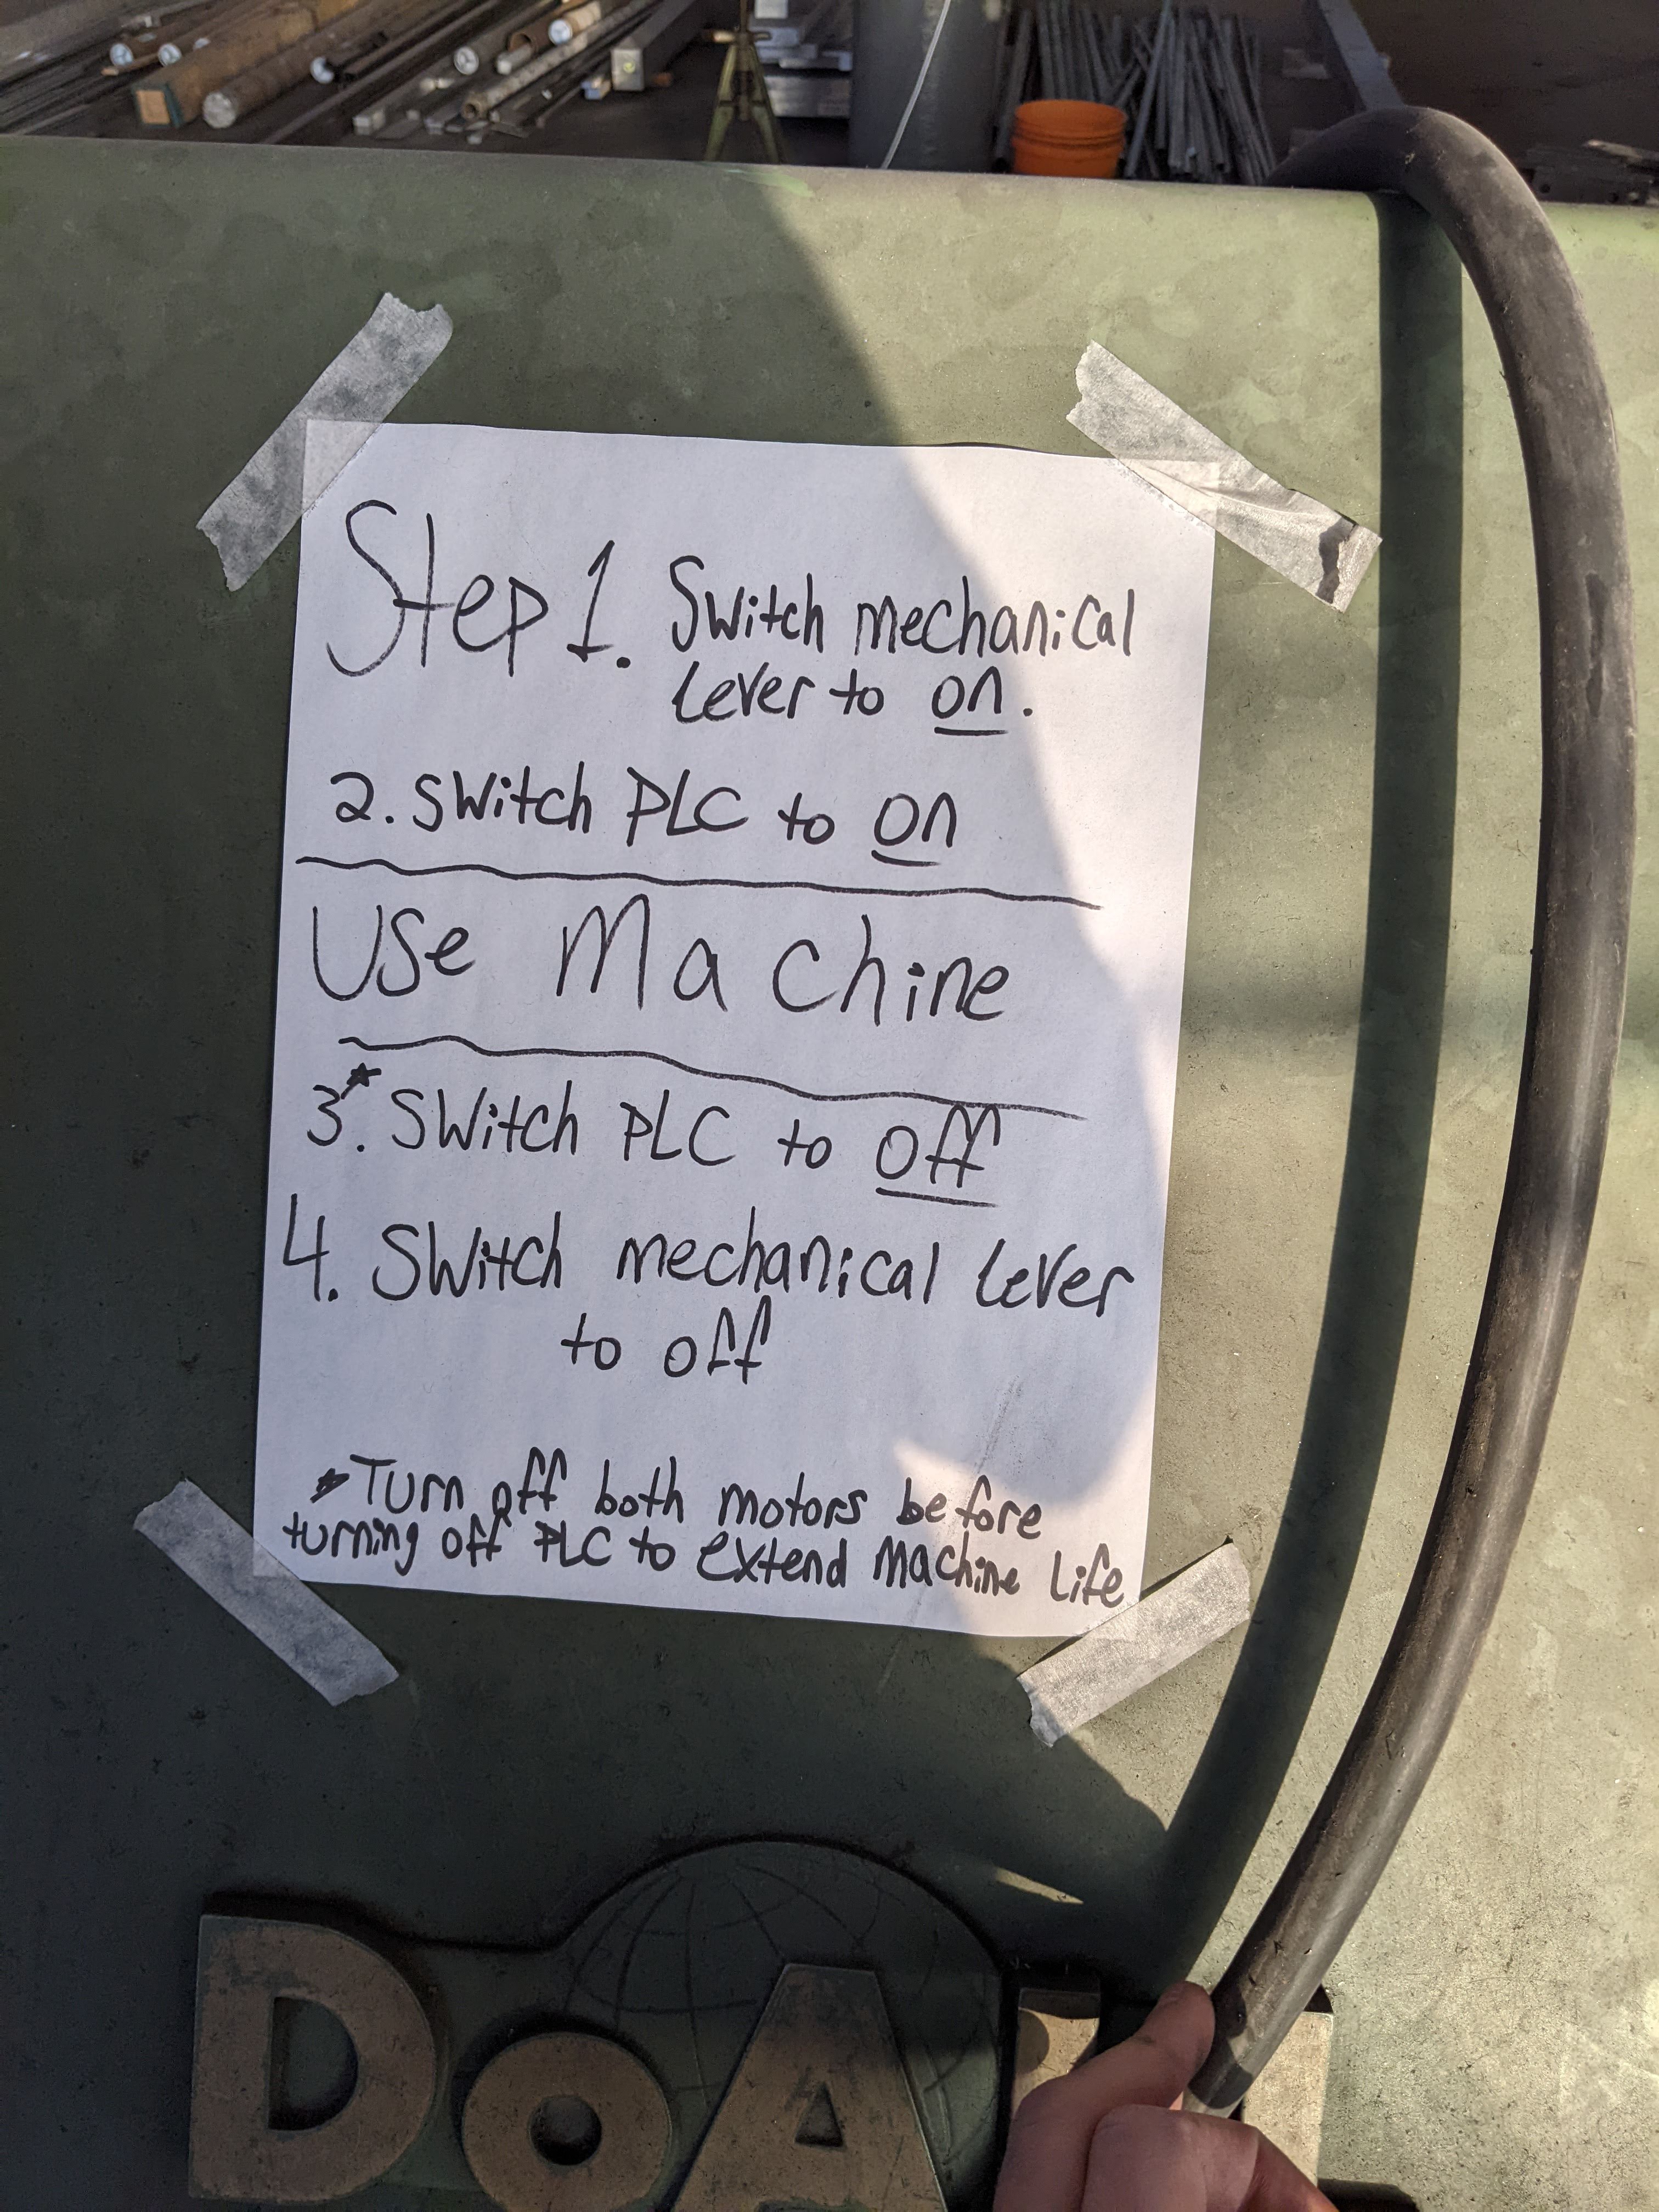 Step 1. Switch mechanical
lever to on.
2. Switch PLC to on
Use Machine
3*. Switch PLC to off
4. Switch mechanical lever
to off
*Turn off both motors before
turning off PLC to extend machine life
DoA